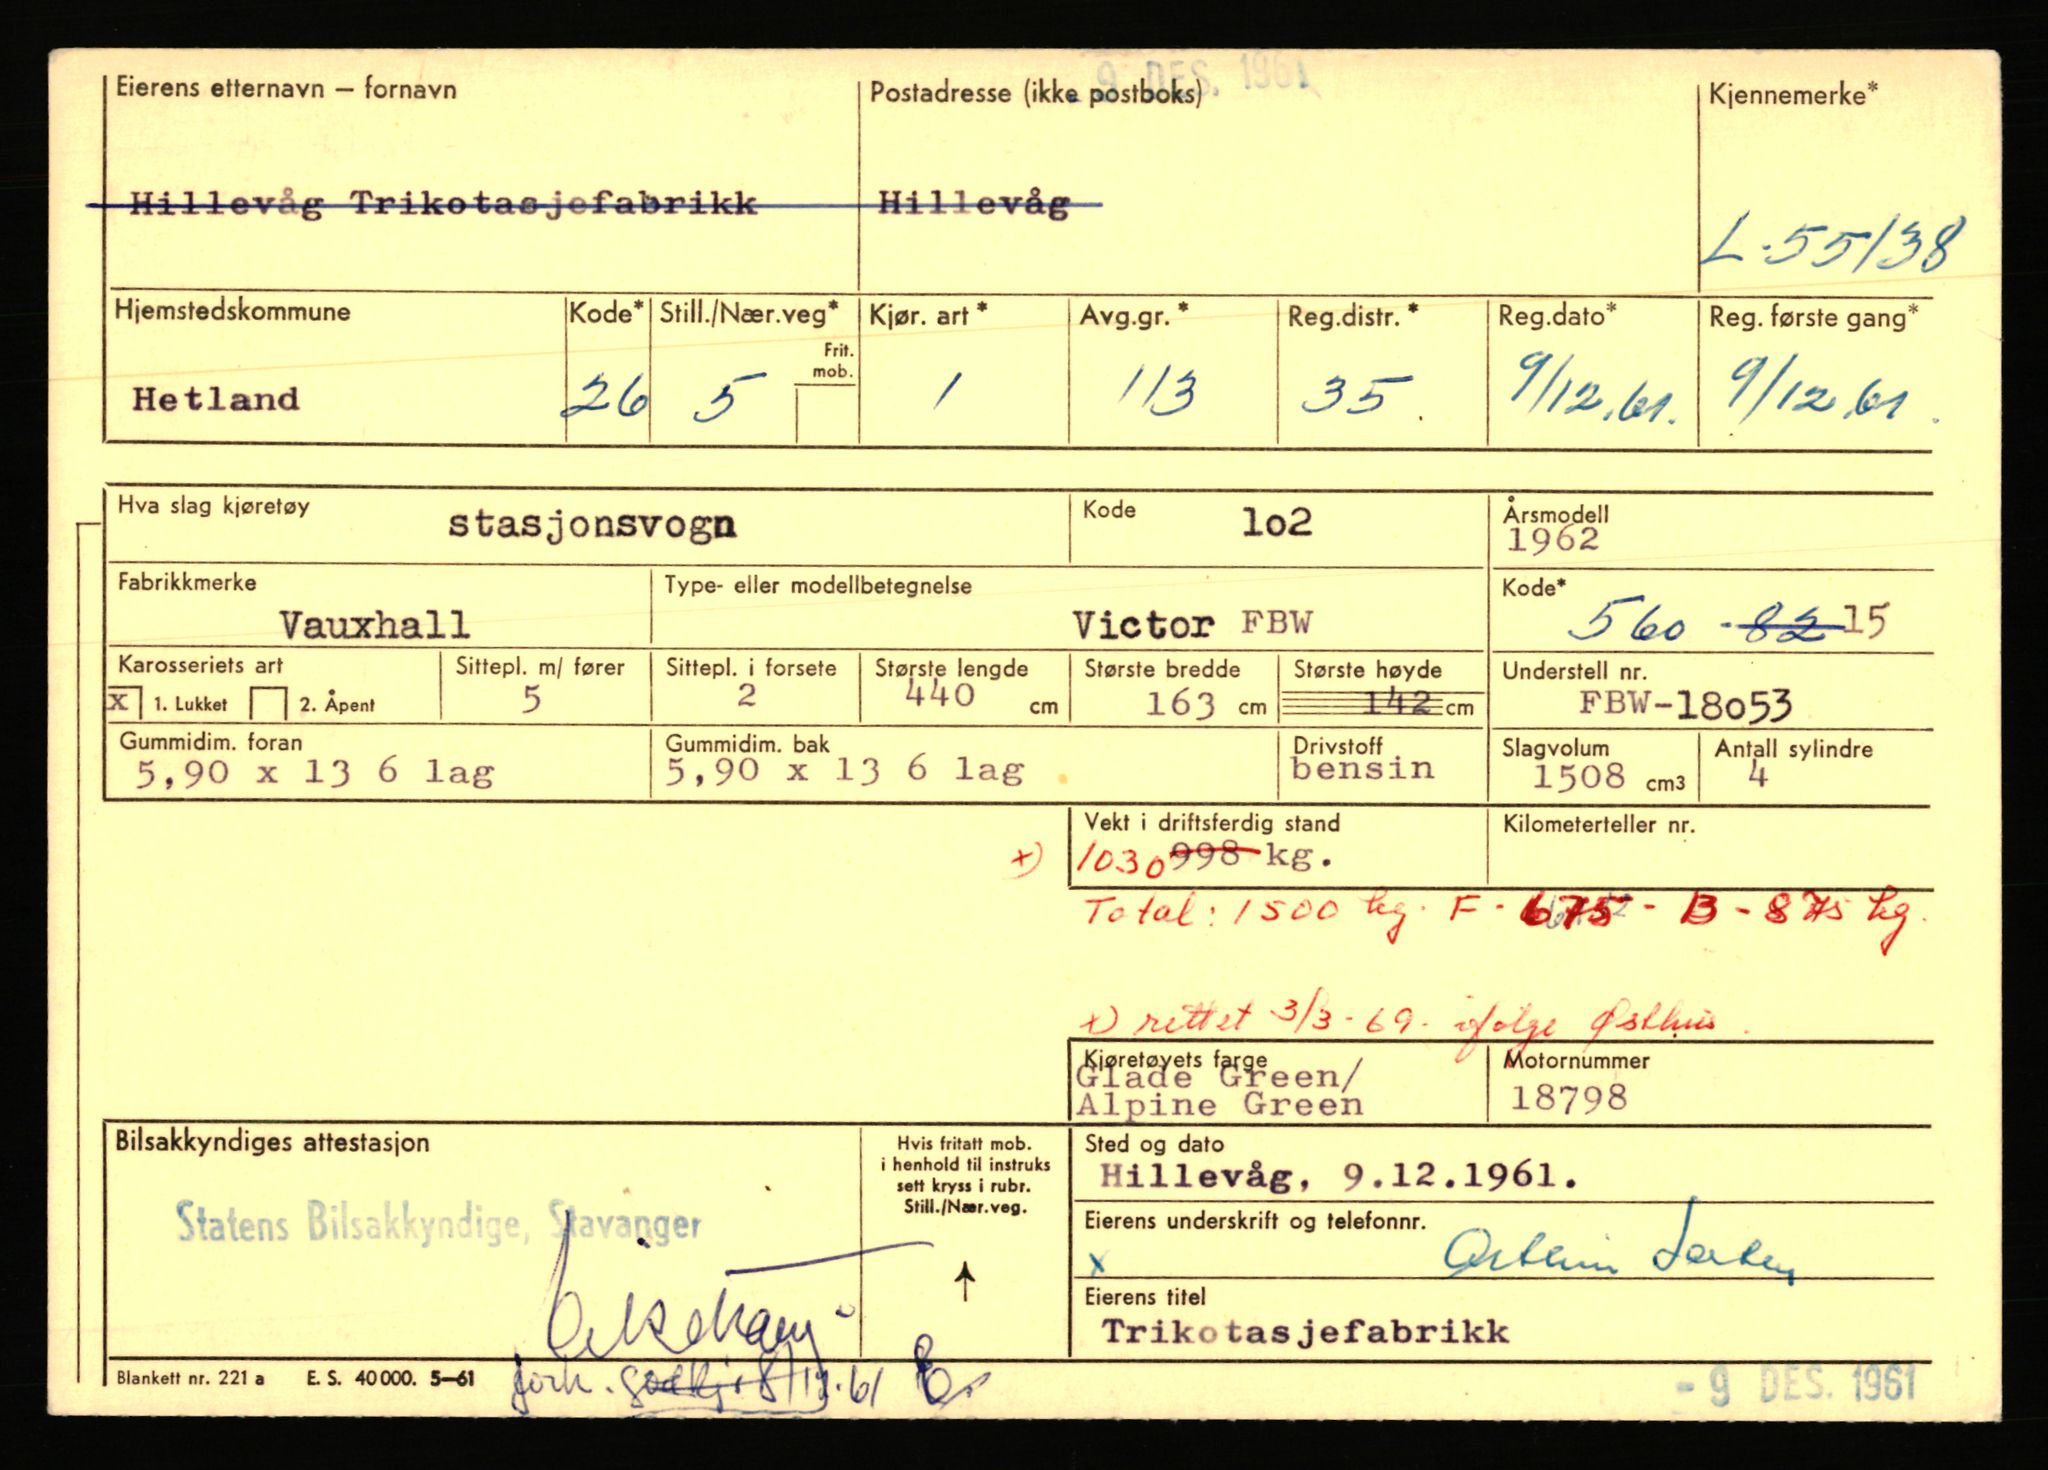 - 9 DES. 1961
Eierens etternavn – fornavn
Postadresse (ikke postboks)
Kjennemerke*
Hillevåg Trikotasjefabrikk
Hillevåg
L-55138
Hjemstedskommune
Kode*
Still./Nær.veg*
Frit. mob.
Kjør. art *
Avg.gr. *
Reg.distr. *
Reg.dato*
Reg. første gang*
Hetland
26
5
1
113
35
9/12.61.
9/12.61.
Hva slag kjøretøy
stasjonsvogn
Kode
1o2
Årsmodell
1962
Fabrikkmerke
Vauxhall
Type- eller modellbetegnelse
Victor FBW
Kode*
560 - 82 15
Karosseriets art
x 1. Lukket 2. Åpent
Sittepl. m/ fører
5
Sittepl. i forsete
2
Største lengde
440 cm
Største bredde
163 cm
Største høyde
142 cm
Understell nr.
FBW-18o53
Gummidim. foran
5,90 x 13 6 lag
Gummidim. bak
5,90 x 13 6 lag
Drivstoff
bensin
Slagvolum
1508 cm3
Antall sylindre
4
Vekt i driftsferdig stand
x) 1030 998 kg.
Kilometerteller nr.
Total: 1500 kg. F - 675 - B - 875 kg.
x) rettet 3/3-69. ifølge Østhus.
Kjøretøyets farge
Glade Green/
Alpine Green
Motornummer
18798
Bilsakkyndiges attestasjon
Hvis fritatt mob.
i henhold til instruks
sett kryss i rubr.
Still./Nær.veg.
Sted og dato
Hillevåg, 9.12.1961.
Statens Bilsakkyndige, Stavanger
Eierens underskrift og telefonnr.
x
Eierens titel
Trikotasjefabrikk
Blankett nr. 221 a E. S. 40 000. 5-61
forh. godkj. 8/12.61
- 9 DES. 1961